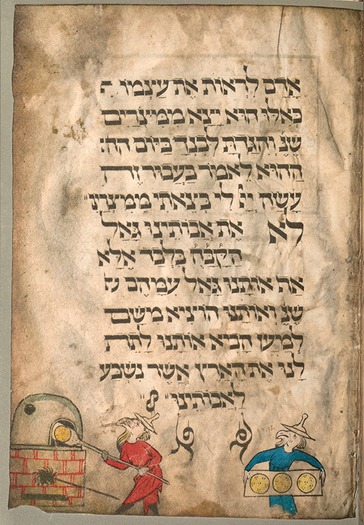 אדם לראות את עצמו
כאלו הוא יצא ממצרים
שנ והגדת לבנך ביום
ההוא לאמר בעבור זה
עשה יי לי בצאתי ממצרים
לא את אבותינו גאל
הקבה בלבד אלא
אף אותנו גאל עמהם
שנ ואותנו הוציא משם
למען הביא אותנו לתת
לנו את הארץ אשר נשבע
לאבותינו